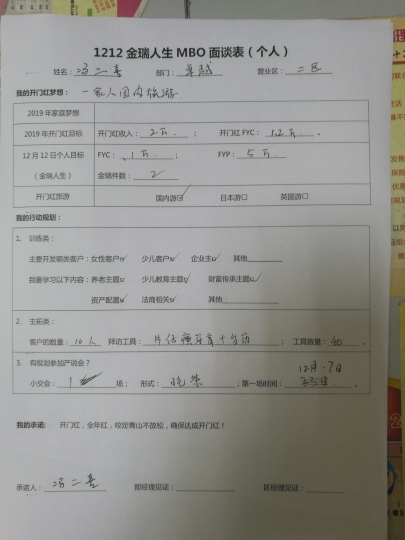 1212金瑞人生MBO面谈表（个人）
姓名：冯二喜 部门：卓越 营业区：二区
我的开门红梦想：一家人国内旅游
2019年家庭梦想
2019年开门红目标 开门红收入：2万. ； 开门红FYC：1.2万 。
12月12日个人目标 FYC：1万. ； FYP：5万.
（金瑞人生） 金瑞件数：2
开门红旅游 国内游☑ 日本游□ 英国游□
我的行动规划：
1. 训练类：
主要开发哪类客户：女性客户☑ 少儿客户☑ 企业主☑ 其他
我要学习以下内容：养老主题☑ 少儿教育主题☑ 财富传承主题☑
资产配置☑ 法商相关☑ 其他
2. 主拓类：
客户的数量：10人 拜访工具：片仔癀牙膏十台历 ；工具数量：40 。
3. 有规划参加产说会？
12月·7日
小交会：1 场； 形式： ；第一场时间：
我的承诺： 开门红，全年红，咬定青山不放松，确保达成开门红！
承诺人：冯二喜 部经理见证： 区经理见证：